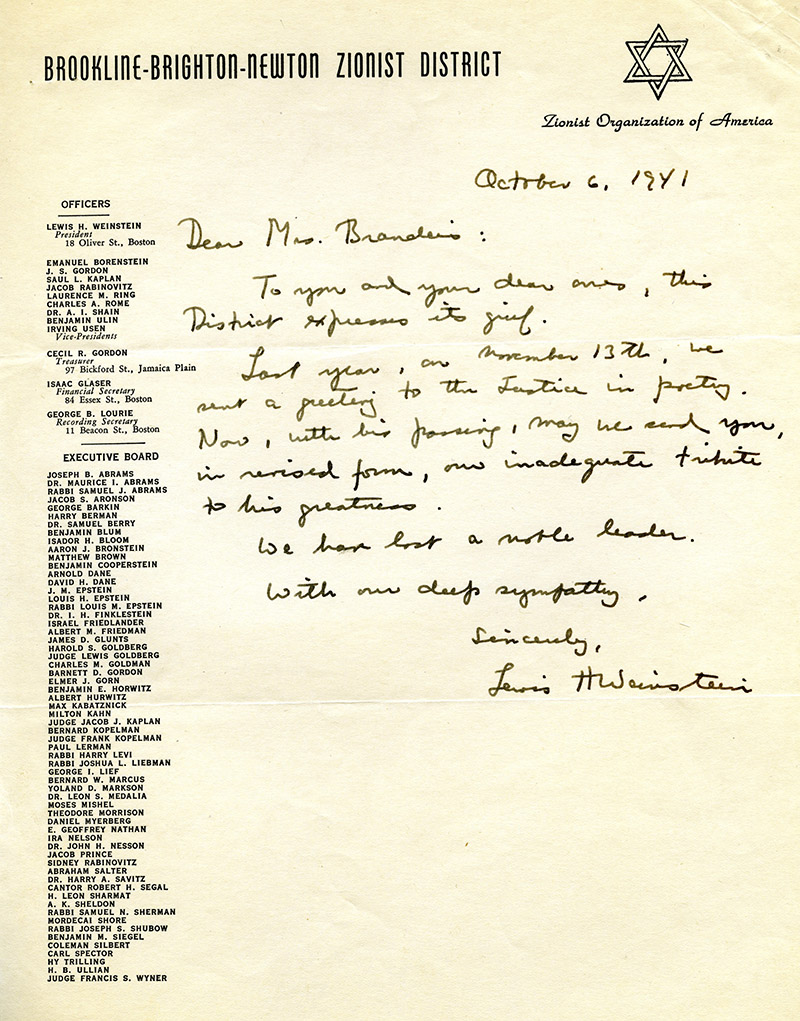 BROOKLINE-BRIGHTON-NEWTON ZIONIST DISTRICT
Zionist Organization of America
October 6, 1941
OFFICERS
LEWIS H. WEINSTEIN
President
18 Oliver St., Boston
EMANUEL BORENSTEIN
J. S. GORDON
SAUL L. KAPLAN
JACOB RABINOVITZ
LAURENCE M. RING
CHARLES A. ROME
DR. A. I. SHAIN
BENJAMIN ULIN
IRVING USEN
Vice-Presidents
CECIL R. GORDON
Treasurer
97 Bickford St., Jamaica Plain
ISAAC GLASER
Financial Secretary
84 Essex St., Boston
GEORGE B. LOURIE
Recording Secretary
11 Beacon St., Boston
EXECUTIVE BOARD
JOSEPH B. ABRAMS
DR. MAURICE I. ABRAMS
RABBI SAMUEL J. ABRAMS
JACOB S. ARONSON
GEORGE BARKIN
HARRY BERMAN
DR. SAMUEL BERRY
BENJAMIN BLUM
ISADOR H. BLOOM
AARON J. BRONSTEIN
MATTHEW BROWN
BENJAMIN COOPERSTEIN
ARNOLD DANE
DAVID H. DANE
J. M. EPSTEIN
LOUIS H. EPSTEIN
RABBI LOUIS M. EPSTEIN
DR. I. H. FINKLESTEIN
ISRAEL FRIEDLANDER
ALBERT M. FRIEDMAN
JAMES D. GLUNTS
HAROLD S. GOLDBERG
JUDGE LEWIS GOLDBERG
CHARLES M. GOLDMAN
BARNETT D. GORDON
ELMER J. GORN
BENJAMIN E. HORWITZ
ALBERT HURWITZ
MAX KABATZNICK
MILTON KAHN
JUDGE JACOB J. KAPLAN
BERNARD KOPELMAN
JUDGE FRANK KOPELMAN
PAUL LERMAN
RABBI HARRY LEVI
RABBI JOSHUA L. LIEBMAN
GEORGE I. LIEF
BERNARD W. MARCUS
YOLAND D. MARKSON
DR. LEON S. MEDALIA
MOSES MISHEL
THEODORE MORRISON
DANIEL MYERBERG
E. GEOFFREY NATHAN
IRA NELSON
DR. JOHN H. NESSON
JACOB PRINCE
SIDNEY RABINOVITZ
ABRAHAM SALTER
DR. HARRY A. SAVITZ
CANTOR ROBERT H. SEGAL
H. LEON SHARMAT
A. K. SHELDON
RABBI SAMUEL N. SHERMAN
MORDECAI SHORE
RABBI JOSEPH S. SHUBOW
BENJAMIN M. SIEGEL
COLEMAN SILBERT
CARL SPECTOR
HY TRILLING
H. B. ULLIAN
JUDGE FRANCIS S. WYNER
Dear Mrs. Brandeis :
To you and your dear ones, this
District expresses its grief.
Last year, on November 13th, we
sent a greeting to the Justice in poetry.
Now, with his passing, may we send you,
in revised form, our inadequate tribute
to his greatness.
We have lost a noble leader.
With our deep sympathy,
Sincerely,
Lewis H Weinstein